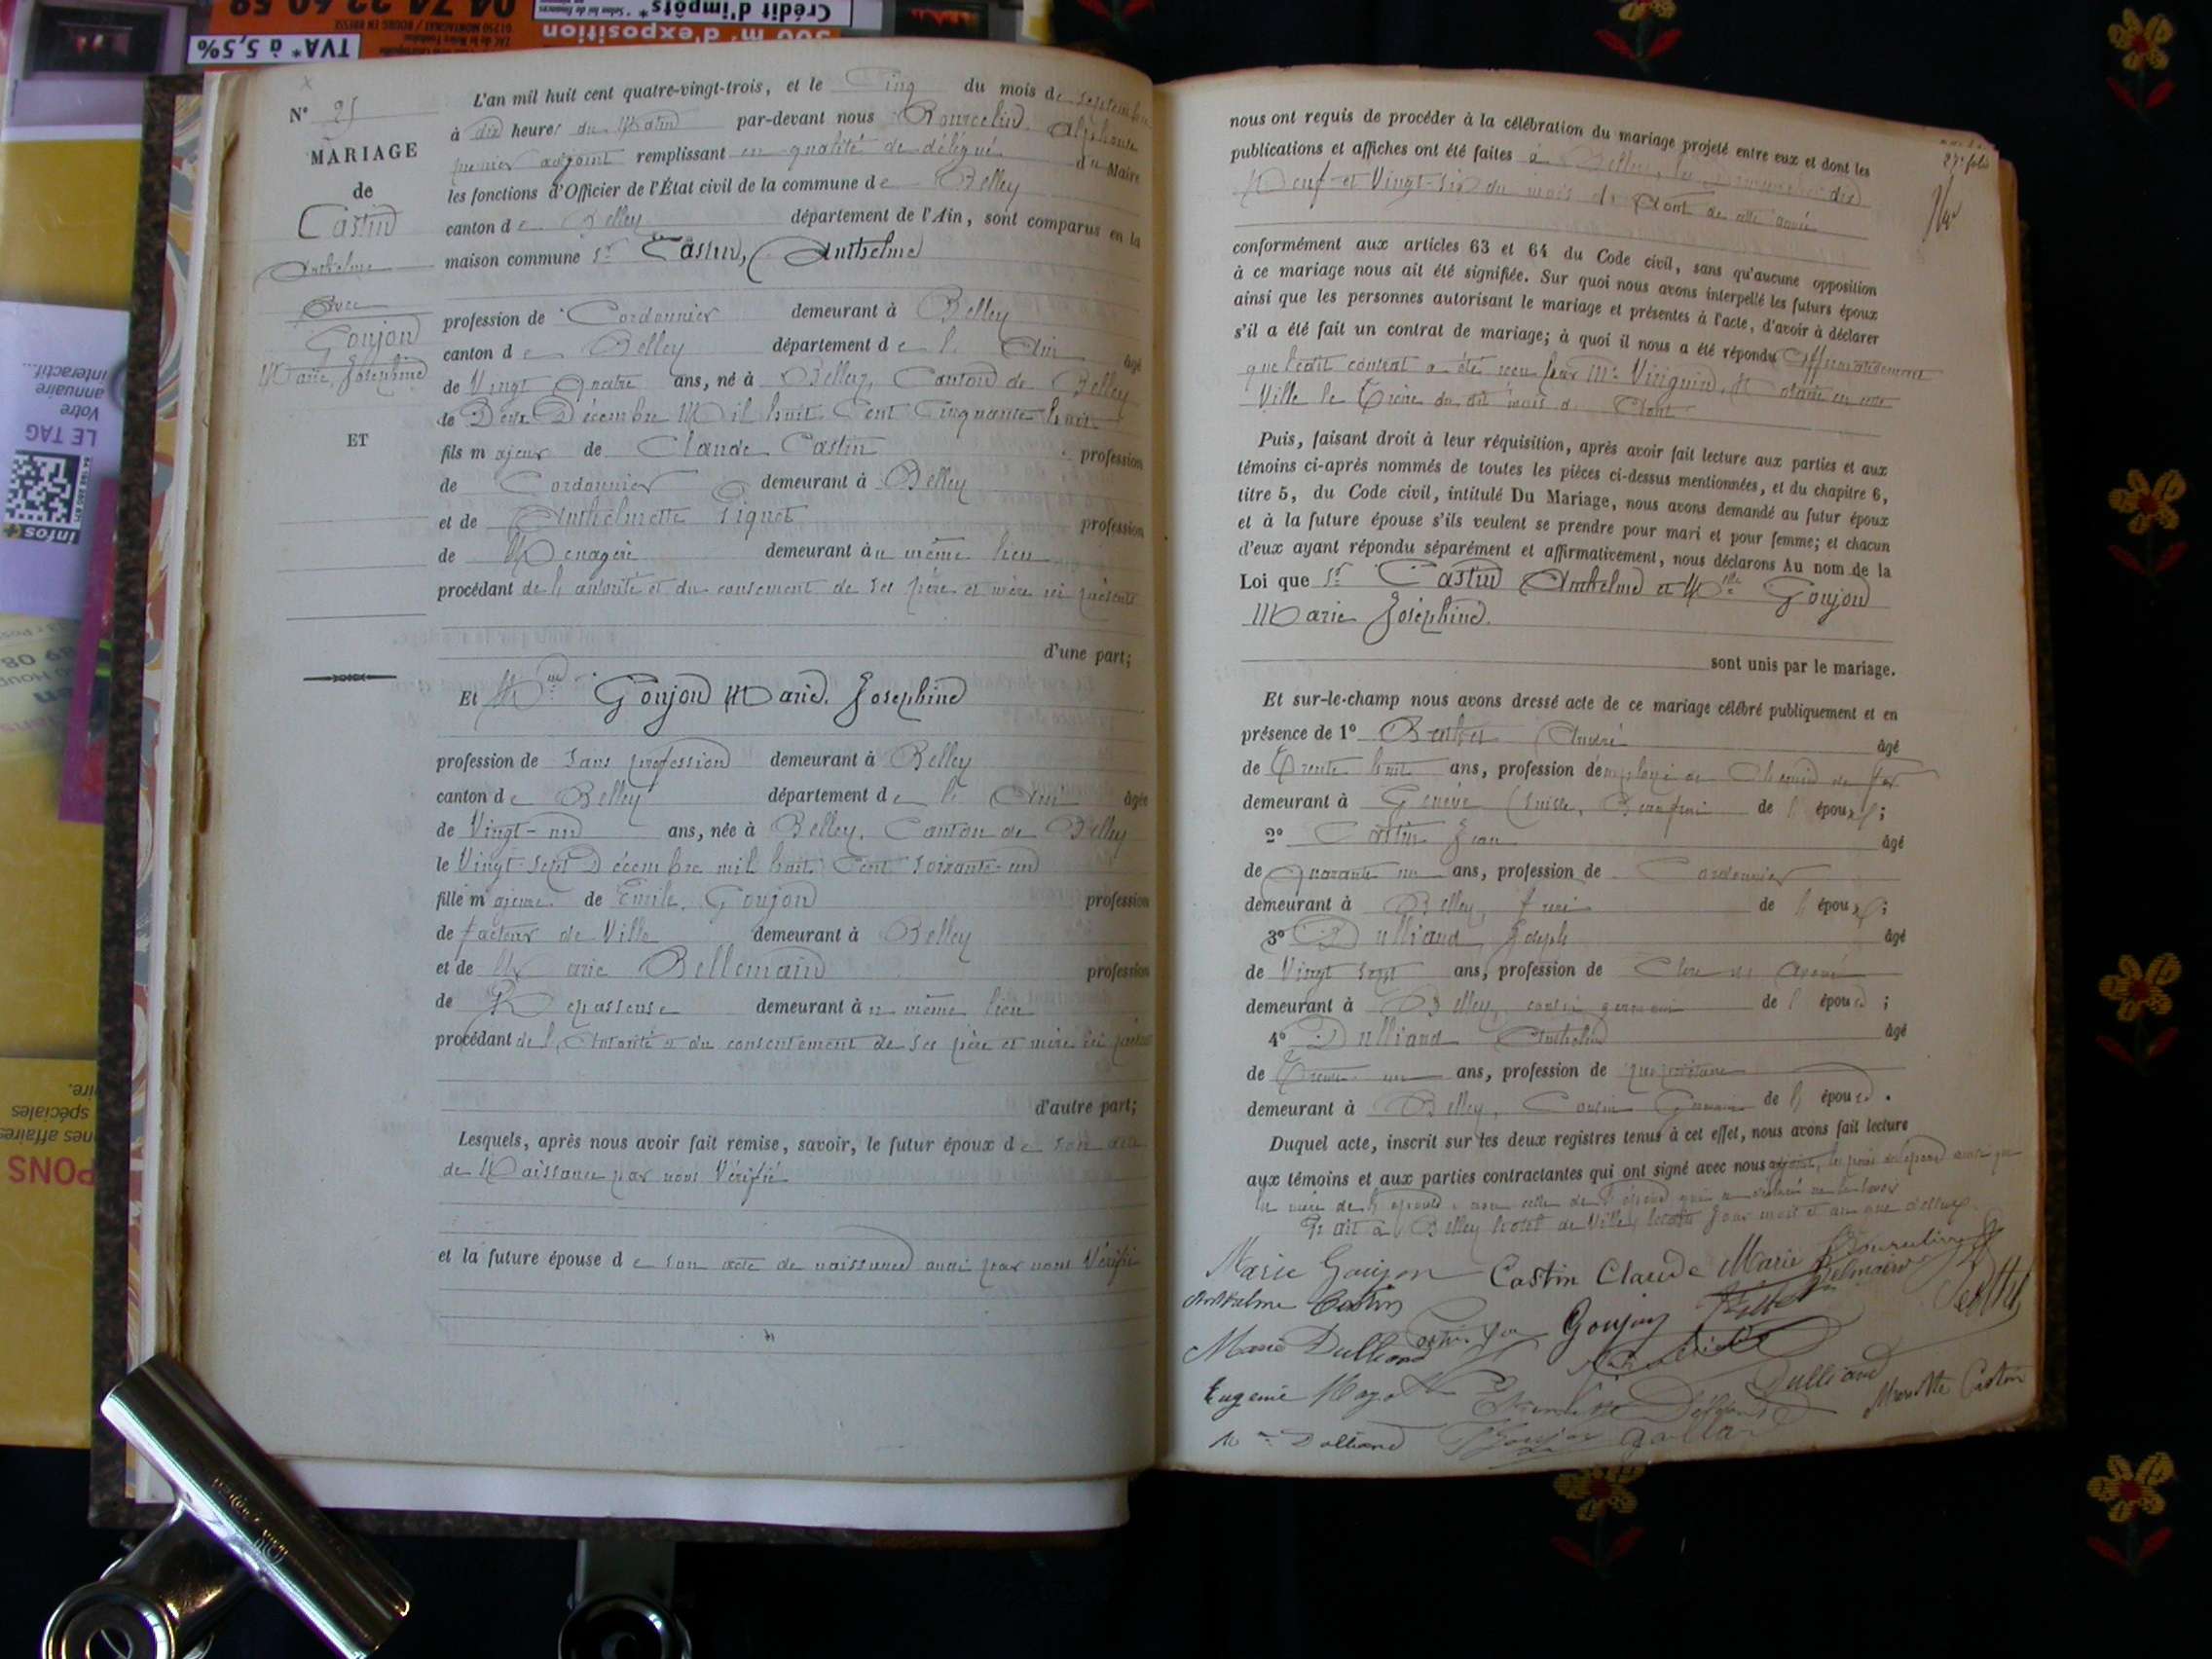 04 74 22 60 59
01250 MONTAGNAT / BOURG EN BRESSE
TVA* à 5,5%
Crédit d'impôts*
300 m² d'exposition
interactif...
annuaire
Votre
LE TAG
infos+
PONS
nes affaires
spéciales
N° 25
MARIAGE
de
Castin
Anthelme
Avec
Goujon
Marie, Joséphine
ET
L'an mil huit cent quatre-vingt-trois, et le Cinq du mois de septembre
à dix heures du Matin par-devant nous Bourcelin Alphonse
premier adjoint remplissant en qualité de délégué du Maire
les fonctions d'Officier de l'État civil de la commune de Belley
canton de Belley département de l'Ain, sont comparus en la
maison commune Sr Castin, Anthelme
profession de Cordonnier demeurant à Belley
canton de Belley département de l'Ain âgé
de Vingt quatre ans, né à Belley, Canton de Belley
le Deux Décembre Mil huit Cent Cinquante huit
fils majeur de Claude Castin profession
de Cordonnier demeurant à Belley
et de Anthelmette Siguet profession
de Ménagère demeurant au même lieu
procédant de l'autorité et du consement de ses père et mère ici présents
d'une part;
Et Mlle Goujon Marie, Joséphine
profession de Sans profession demeurant à Belley
canton de Belley département de l'Ain âgée
de Vingt-un ans, née à Belley, Canton de Belley
le Vingt-sept Décembre mil huit Cent soixante-un
fille majeure de Emile Goujon profession
de facteur de Ville demeurant à Belley
et de Marie Bellemain profession
de Repasseuse demeurant au même lieu
procédant de l'Autorité et du consentement de ses père et mère ici présents
d'autre part;
Lesquels, après nous avoir fait remise, savoir, le futur époux de son acte
de Naissance par nous Vérifié
et la future épouse de son acte de naissance aussi par nous Vérifié
27e folio
nous ont requis de procéder à la célébration du mariage projeté entre eux et dont les
publications et affiches ont été faites à Belley, les dimanches dix
Neuf et Vingt-six du mois d'Aout de cette année
conformément aux articles 63 et 64 du Code civil, sans qu'aucune opposition
à ce mariage nous ait été signifiée. Sur quoi nous avons interpellé les futurs époux
ainsi que les personnes autorisant le mariage et présentes à l'acte, d'avoir à déclarer
s'il a été fait un contrat de mariage; à quoi il nous a été répondu Affirmativement
que ledit contrat a été reçu par Me Viriguin, Notaire en cette
Ville le Treize du dit mois d'Aout
Puis, faisant droit à leur réquisition, après avoir fait lecture aux parties et aux
témoins ci-après nommés de toutes les pièces ci-dessus mentionnées, et du chapitre 6,
titre 5, du Code civil, intitulé Du Mariage, nous avons demandé au futur époux
et à la future épouse s'ils veulent se prendre pour mari et pour femme; et chacun
d'eux ayant répondu séparément et affirmativement, nous déclarons Au nom de la
Loi que Sr Castin Anthelme et Mlle Goujon
Marie Joséphine.
sont unis par le mariage.
Et sur-le-champ nous avons dressé acte de ce mariage célébré publiquement et en
présence de 1° Berthet André âgé
de Trente huit ans, profession d'employé au Chemin de fer
demeurant à Genève (Suisse, Beaufrère de l'époux;
2° Castin Jean âgé
de quarante un ans, profession de Cordonnier
demeurant à Belley, frère de l'époux;
3° Dulliand Joseph âgé
de Vingt sept ans, profession de Clerc d'Avoué
demeurant à Belley, cousin germain de l'épouse;
4° Dulliand Anthelme âgé
de Trente un ans, profession de propriétaire
demeurant à Belley, Cousin Germain de l'épouse.
Duquel acte, inscrit sur les deux registres tenus à cet effet, nous avons fait lecture
aux témoins et aux parties contractantes qui ont signé avec nous adjoint, les pères
la mère de l'épouse, non celle de l'époux qui a déclaré ne le savoir
Fait à Belley hotel de Ville, jour mois et an que dessus
Marie Goujon Castin Claude Marie Bellemain Bourcelin
Anthelme Castin Goujon
Marie Dulliand
Eugenie Dulliand Mariette Castin
Dulliand Goujon